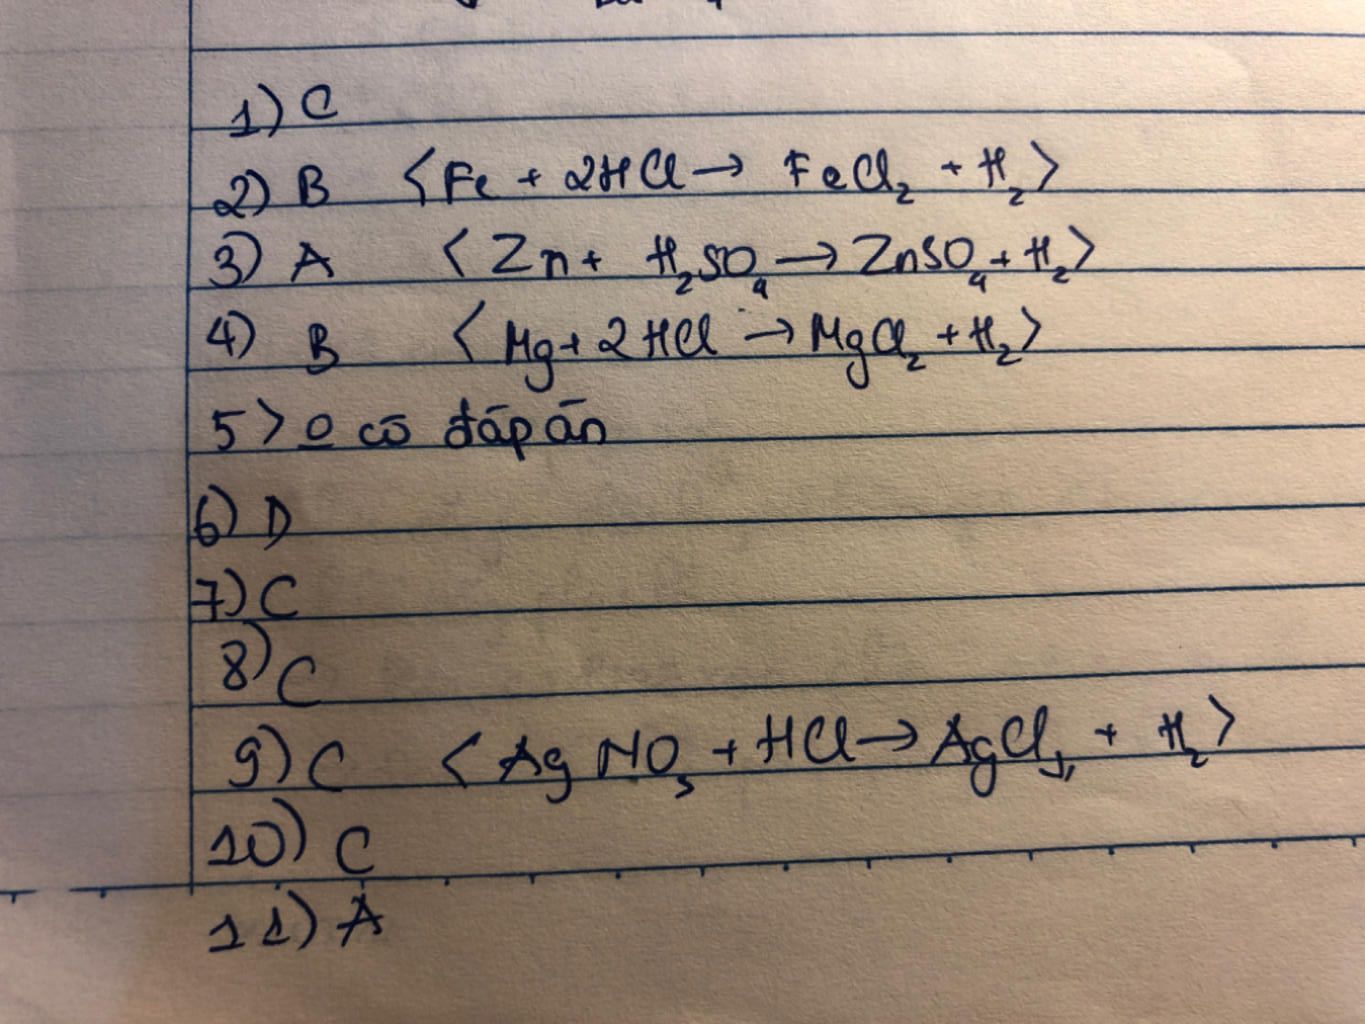 1) C
2) B <Fe + 2HCl → FeCl₂ + H₂>
3) A <Zn + H₂SO₄ → ZnSO₄ + H₂>
4) B <Mg + 2HCl → MgCl₂ + H₂>
5> o có đáp án
6) D
7) C
8) C
9) C <AgNO₃ + HCl → AgCl↓ + H₂>
10) C
11) A